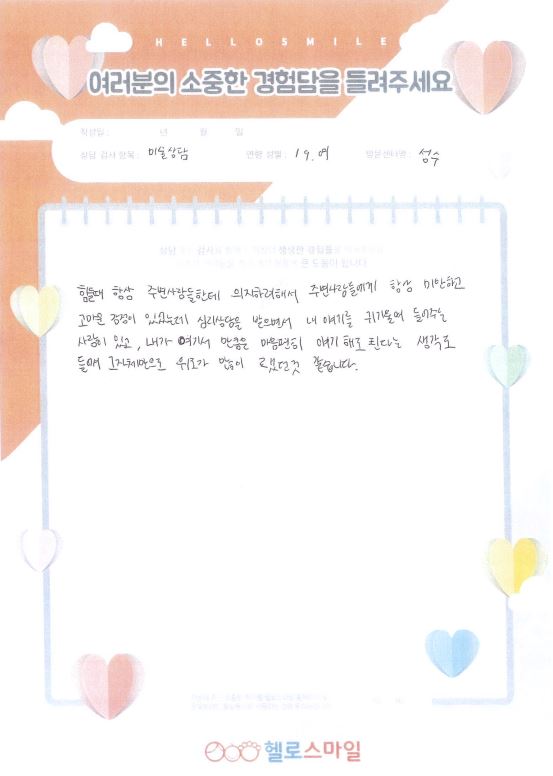 HELLOSMILE
여러분의 소중한 경험담을 들려주세요
작성일 : 년 월 일
상담 검사 항목 : 미술상담 연령 성별 : 19. 여 방문센터명 : 성수
힘들때 항상 주변사람들한테 의지하려해서 주변사람들에게 항상 미안하고
고마운 감정이 있었는데 심리상담을 받으면서 내 얘기를 귀기울여 들어주는
사람이 있고, 내가 여기서 만큼은 마음편히 얘기 해도 된다는 생각도
들어 그자체만으로 위로가 많이 되었던것 같습니다.
헬로스마일